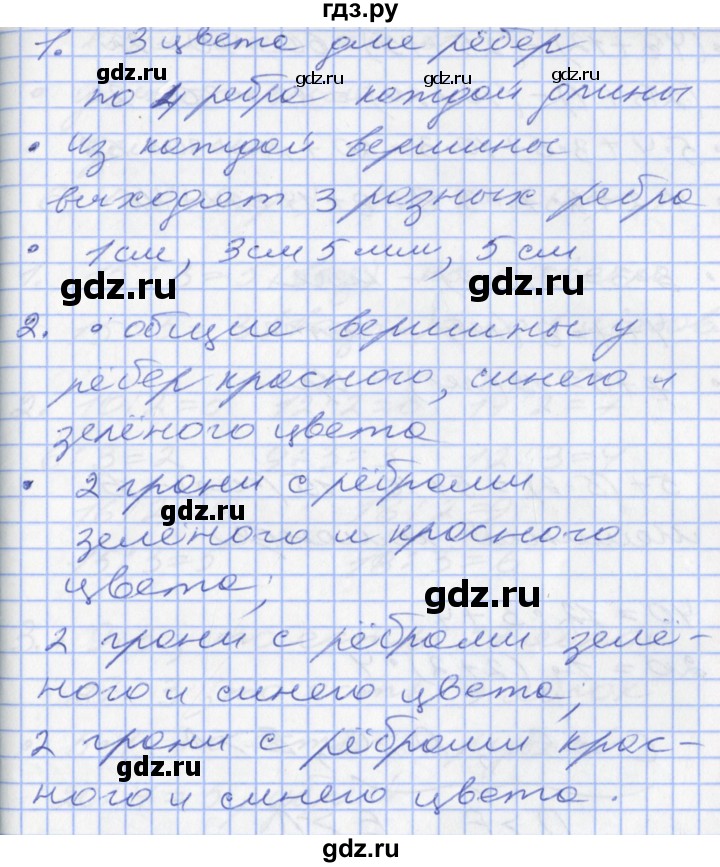 гдз.ру
1. 3 цвета для рёбер
gdz.ru gdz.ru gdz.ru gdz.ru
по 4 ребра каждой длины
• Из каждой вершины
выходят 3 разных ребра
• 1 см, 3 см 5 мм, 5 см
gdz.ru gdz.ru
2. • общие вершины у
рёбер красного, синего и
зелёного цвета
• 2 грани с рёбрами
gdz.ru
зелёного и красного
цвета;
gdz.ru
2 грани с рёбрами зелё-
ного и синего цвета;
2 грани с рёбрами крас-
gdz.ru
ного и синего цвета.